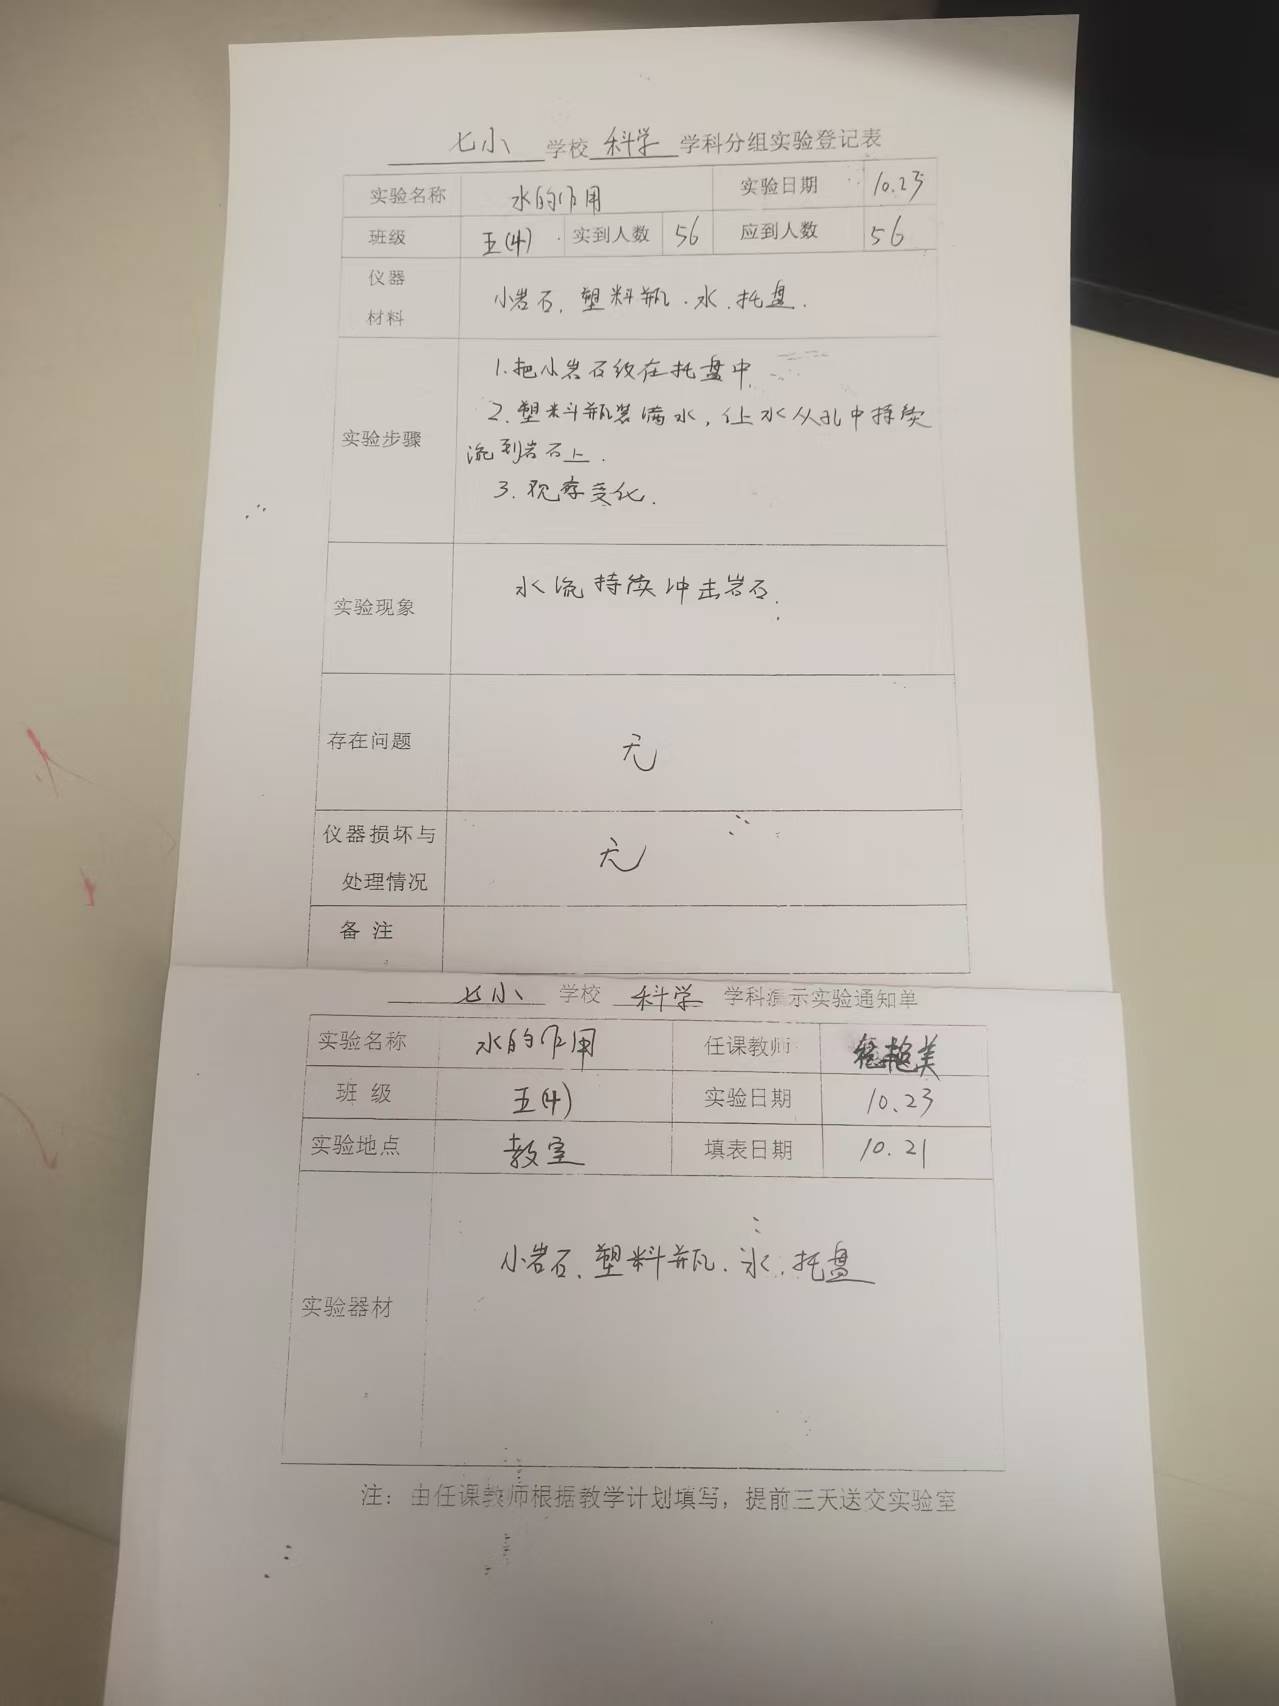 七小 学校 科学 学科分组实验登记表
实验名称 水的作用 实验日期 10.23
班级 五(4) 实到人数 56 应到人数 56
仪器
小岩石、塑料瓶、水、托盘.
材料
1.把小岩石放在托盘中.
2.塑料瓶装满水,让水从孔中持续
实验步骤
流到岩石上.
3.观察变化.
水流持续冲击岩石.
实验现象
存在问题 无
仪器损坏与
无
处理情况
备 注
七小 学校 科学 学科演示实验通知单
实验名称 水的作用 任课教师
班 级 五(4) 实验日期 10.23
实验地点 教室 填表日期 10.21
小岩石、塑料瓶、水、托盘
实验器材
注: 由任课教师根据教学计划填写,提前三天送交实验室